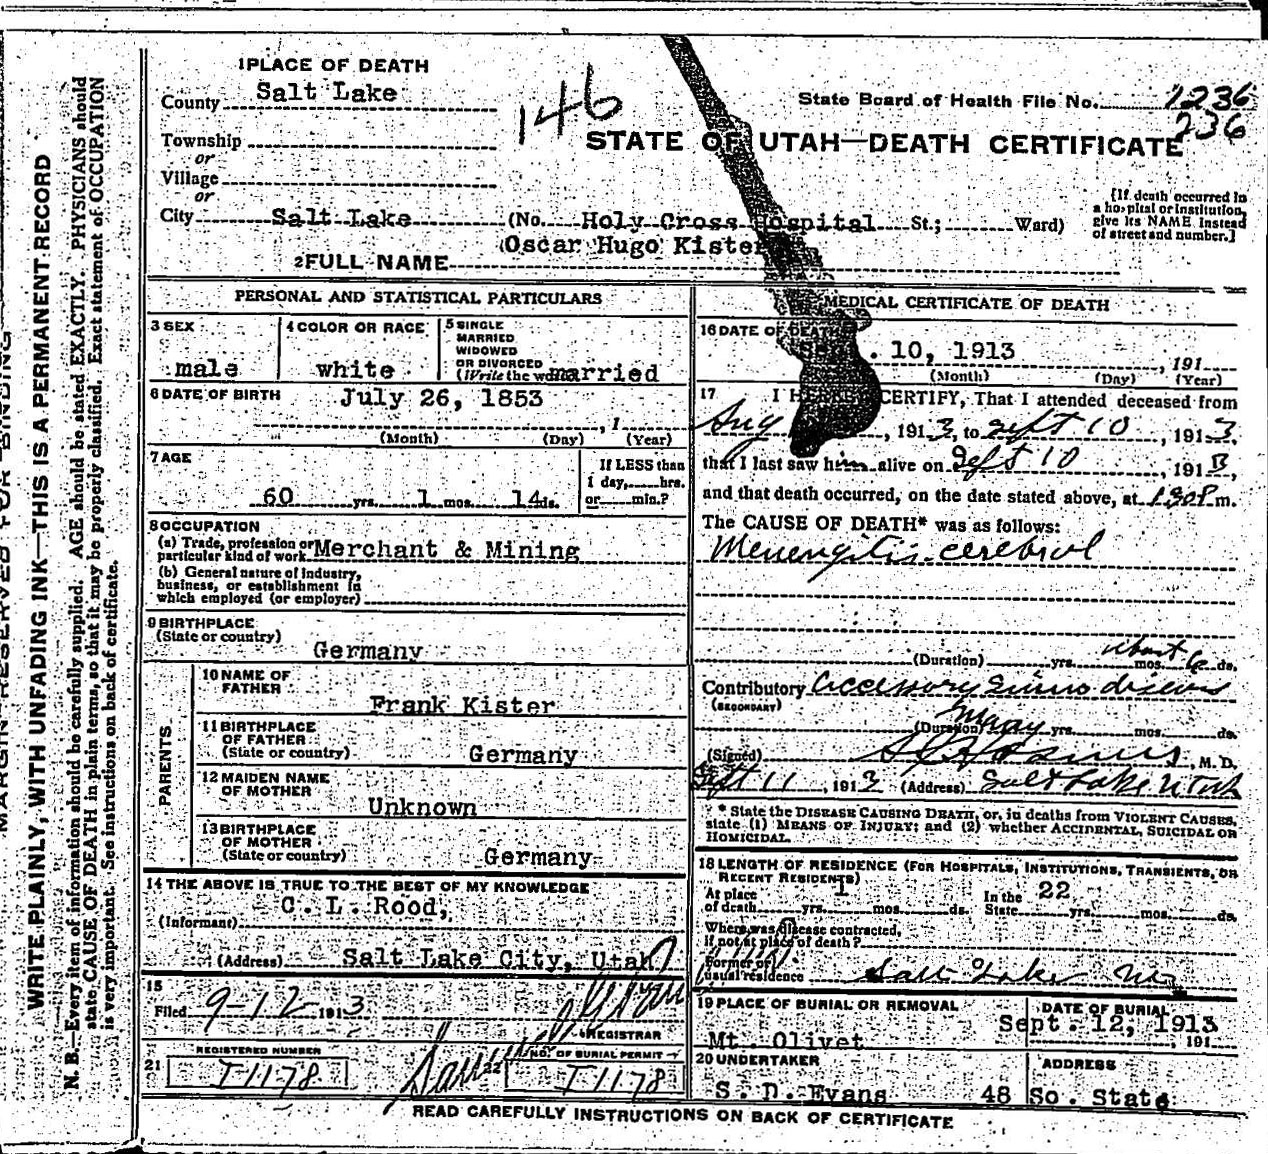 1 PLACE OF DEATH
County Salt Lake
146
State Board of Health File No. 1236
236
STATE OF UTAH—DEATH CERTIFICATE
Township
or
Village
or
City Salt Lake (No. Holy Cross Hospital St.; Ward)
[If death occurred in
a hospital or institution,
give its NAME instead
of street and number.]
2 FULL NAME Oscar Hugo Kister
PERSONAL AND STATISTICAL PARTICULARS
3 SEX
male
4 COLOR OR RACE
white
5 SINGLE
MARRIED
WIDOWED
OR DIVORCED
(Write the word) married
6 DATE OF BIRTH July 26, 1853
, 1
(Month) (Day) (Year)
7 AGE
60 yrs. 1 mos. 14 ds.
If LESS than
1 day, hrs.
or min.?
8 OCCUPATION
(a) Trade, profession or
particular kind of work Merchant & Mining
(b) General nature of industry,
business, or establishment in
which employed (or employer)
9 BIRTHPLACE
(State or country)
Germany
PARENTS
10 NAME OF
FATHER
Frank Kister
11 BIRTHPLACE
OF FATHER
(State or country) Germany
12 MAIDEN NAME
OF MOTHER
Unknown
13 BIRTHPLACE
OF MOTHER
(State or country) Germany
14 THE ABOVE IS TRUE TO THE BEST OF MY KNOWLEDGE
(Informant) C. L. Rood,
(Address) Salt Lake City, Utah
15
Filed 9-12 1913
REGISTRAR
21
REGISTERED NUMBER
I1178
22
NO. OF BURIAL PERMIT
I1178
MEDICAL CERTIFICATE OF DEATH
16 DATE OF DEATH
. 10, 1913 , 191
(Month) (Day) (Year)
17 I HEREBY CERTIFY, That I attended deceased from
Aug , 1913, to Sept 10 , 1913,
that I last saw him alive on Sept 10 , 1913,
and that death occurred, on the date stated above, at 130P m.
The CAUSE OF DEATH* was as follows:
Menengitis cerebral
(Duration) yrs. about mos. 6 ds.
Contributory accessory sinus
(SECONDARY)
(Duration) many yrs. mos. ds.
(Signed) , M. D.
Sept 11, 1913 (Address) Salt Lake Utah
* State the DISEASE CAUSING DEATH, or, in deaths from VIOLENT CAUSES,
state (1) MEANS OF INJURY; and (2) whether ACCIDENTAL, SUICIDAL OR
HOMICIDAL.
18 LENGTH OF RESIDENCE (FOR HOSPITALS, INSTITUTIONS, TRANSIENTS, OR
RECENT RESIDENTS)
At place
of death yrs. 1 mos. ds.
In the
State 22 yrs. mos. ds.
Where was disease contracted,
if not at place of death?
Former or
usual residence Salt Lake
19 PLACE OF BURIAL OR REMOVAL
Mt. Olivet
DATE OF BURIAL
Sept. 12, 1913
, 191
20 UNDERTAKER
S. D. Evans
ADDRESS
48 So. State
READ CAREFULLY INSTRUCTIONS ON BACK OF CERTIFICATE
MARGIN RESERVED FOR BINDING
WRITE PLAINLY, WITH UNFADING INK—THIS IS A PERMANENT RECORD
N. B.—Every item of information should be carefully supplied. AGE should be stated EXACTLY. PHYSICIANS should
state CAUSE OF DEATH in plain terms, so that it may be properly classified. Exact statement of OCCUPATION
is very important. See instructions on back of certificate.